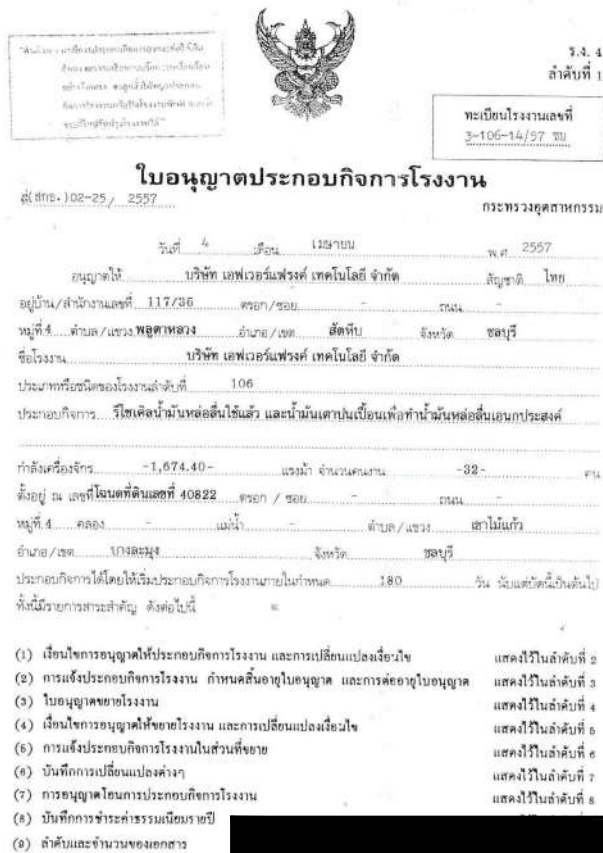 ร.ง. 4
ลำดับที่ 1
ทะเบียนโรงงานเลขที่
3-106-14/57 ชบ
ใบอนุญาตประกอบกิจการโรงงาน
(สกธ.)02-25/ 2557
กระทรวงอุตสาหกรรม
วันที่ 4 เดือน เมษายน พ.ศ. 2557
อนุญาตให้ บริษัท เอฟเวอร์แฟรงค์ เทคโนโลยี จำกัด สัญชาติ ไทย
อยู่บ้าน/สำนักงานเลขที่ 117/36 ตรอก/ซอย - ถนน -
หมู่ที่ 4 ตำบล/แขวง พลูตาหลวง อำเภอ/เขต สัตหีบ จังหวัด ชลบุรี
ชื่อโรงงาน บริษัท เอฟเวอร์แฟรงค์ เทคโนโลยี จำกัด
ประเภทหรือชนิดของโรงงานลำดับที่ 106
ประกอบกิจการ รีไซเคิลน้ำมันหล่อลื่นใช้แล้ว และน้ำมันเตาปนเปื้อนเพื่อทำน้ำมันหล่อลื่นเอนกประสงค์
กำลังเครื่องจักร -1,674.40- แรงม้า จำนวนคนงาน -32- คน
ตั้งอยู่ ณ เลขที่ โฉนดที่ดินเลขที่ 40822 ตรอก / ซอย - ถนน -
หมู่ที่ 4 คลอง - แม่น้ำ - ตำบล/แขวง เขาไม้แก้ว
อำเภอ/เขต บางละมุง จังหวัด ชลบุรี
ประกอบกิจการได้โดยให้เริ่มประกอบกิจการโรงงานภายในกำหนด 180 วัน นับแต่บัดนี้เป็นต้นไป
ทั้งนี้มีรายการสาระสำคัญ ดังต่อไปนี้
(1) เงื่อนไขการอนุญาตให้ประกอบกิจการโรงงาน และการเปลี่ยนแปลงเงื่อนไข แสดงไว้ในลำดับที่ 2
(2) การแจ้งประกอบกิจการโรงงาน กำหนดสิ้นอายุใบอนุญาต และการต่ออายุใบอนุญาต แสดงไว้ในลำดับที่ 3
(3) ใบอนุญาตขยายโรงงาน แสดงไว้ในลำดับที่ 4
(4) เงื่อนไขการอนุญาตให้ขยายโรงงาน และการเปลี่ยนแปลงเงื่อนไข แสดงไว้ในลำดับที่ 5
(5) การแจ้งประกอบกิจการโรงงานในส่วนที่ขยาย แสดงไว้ในลำดับที่ 6
(6) บันทึกการเปลี่ยนแปลงต่างๆ แสดงไว้ในลำดับที่ 7
(7) การอนุญาตโอนการประกอบกิจการโรงงาน แสดงไว้ในลำดับที่ 8
(8) บันทึกการชำระค่าธรรมเนียมรายปี
(9) ลำดับและจำนวนของเอกสาร